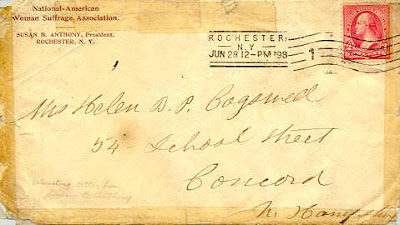 National-American
Woman Suffrage Association.
SUSAN B. ANTHONY, President,
ROCHESTER, N. Y.
ROCHESTER,
N.Y.
JUN 28 12-PM '98
1
Mrs Helen D. P. Cogswell
54 - School Street
Concord
N. Hampshire